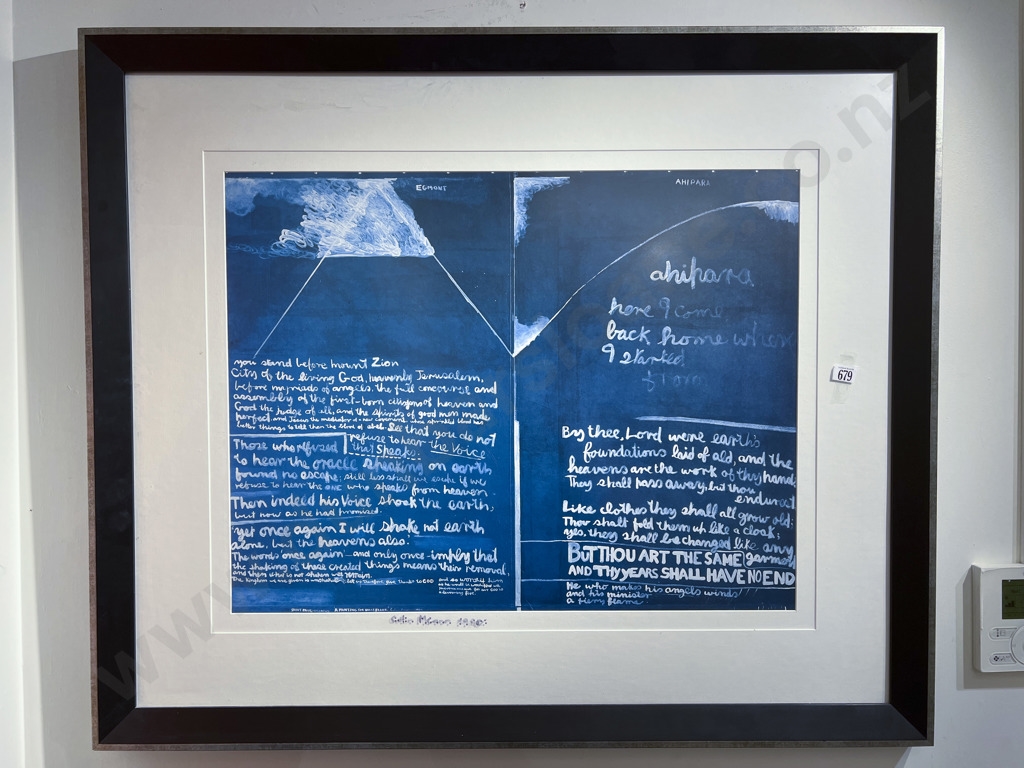 EGMONT
you stand before mount Zion
City of the living God, heavenly Jerusalem,
before myriads of angels, the full concourse and
assembly of the first-born citizens of heaven and
God the judge of all, and the spirits of good men made
perfect, and Jesus the mediator
better things to tell than the blood of abel. See that you do not
refuse to hear the Voice
that Speaks.
Those who refused
to hear the oracle speaking on earth
found no escape; still less shall we escape if we
refuse to hear the one who speaks from heaven.
Then indeed his Voice shook the earth,
but now as he had promised,
yet once again I will shake not earth
alone, but the heavens also.
The words once again - and only once - imply that
the shaking of these created things means their removal,
and then what is not shaken will remain.
AHIPARA
ahipara
here I come
back home where
I started
from
By thee, Lord were earth's
foundations laid of old, and the
heavens are the work of thy hand
They shall pass away, but thou
endurest
Like clothes they shall all grow old;
Thou shalt fold them up like a cloak;
yes, they shall be changed like any
garment
BUT THOU ART THE SAME
AND THY YEARS SHALL HAVE NO END
He who makes his angels winds
and his ministers
a fiery flame
679